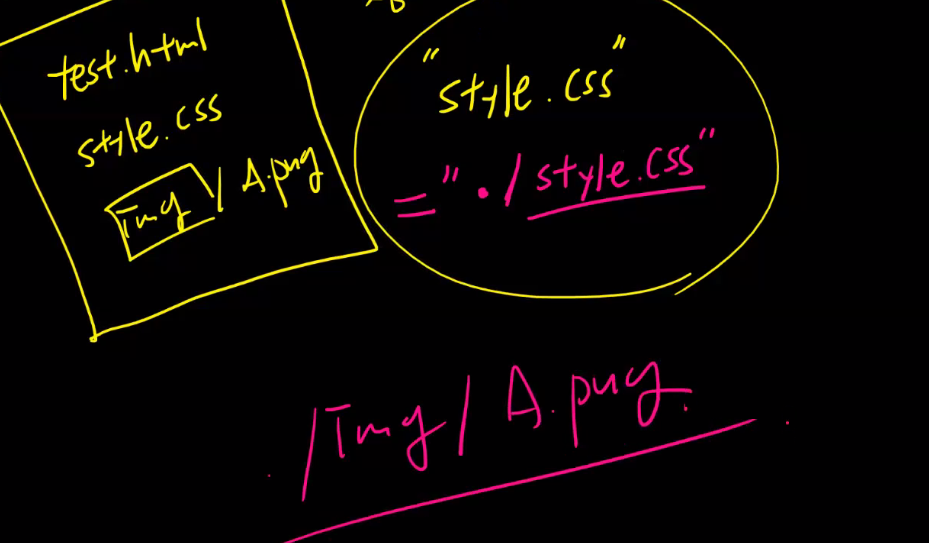 test.html
style.css
Img/A.png
"style.css"
="./style.css"
/Img/A.png.